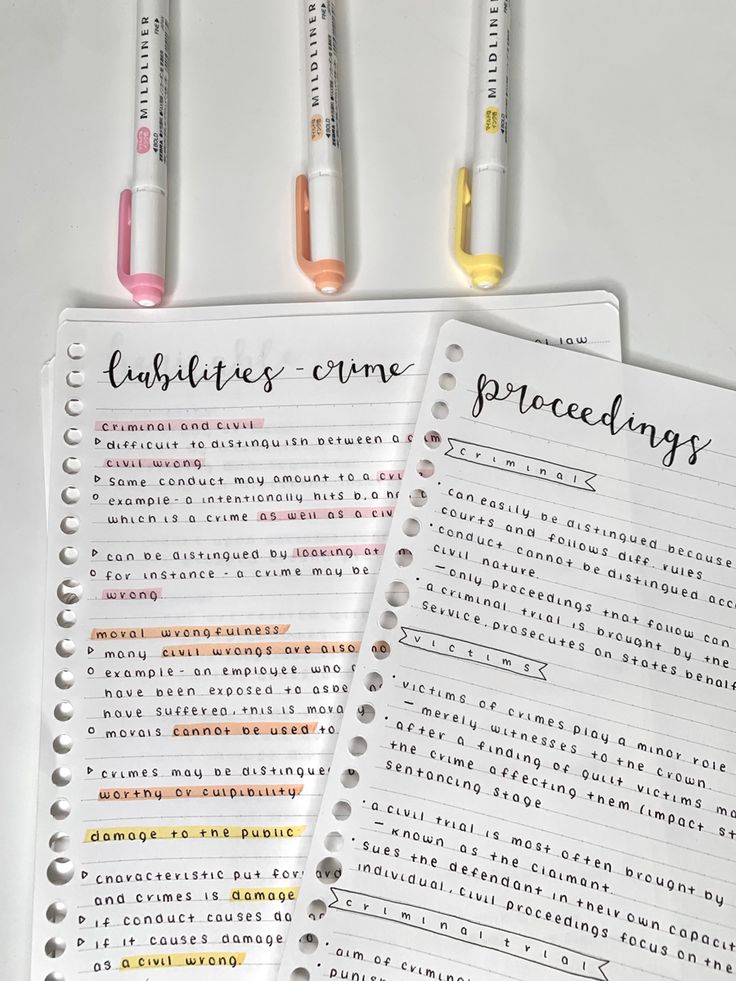 MILDLINER
FINE
BOLD
MILDLINER
FINE
BOLD
MILDLINER
BOLD
law
liabilities - crime
criminal and civil
difficult to distinguish between a
civil wrong.
same conduct may amount to a
example - a intentionally hits b, a
which is a crime as well as a
can be distingued by looking at
for instance - a crime may be
wrong
moral wrongfulness
many civil wrongs are also
example - an employee who
have been exposed to
have suffered, this is
morals cannot be used to
crimes may be
worthy or culpibility
damage to the public
characteristic put
and crimes is damage
if conduct causes
if it causes damage
as a civil wrong.
proceedings
criminal
can easily be distingued because
courts and follows diff. rules
conduct cannot be distingued
civil nature.
- only proceedings that follow can
a criminal trial is brought by the
service, prosecutes on states behalf
victims
victims of crimes play a minor role
- merely witnesses to the crown.
after a finding of guilt victims
the crime affecting them (impact
sentancing stage
a civil trial is most often brought by
- known as the claimant.
sues the defendant in their own
individual, civil proceedings focus on the
criminal trial
aim of